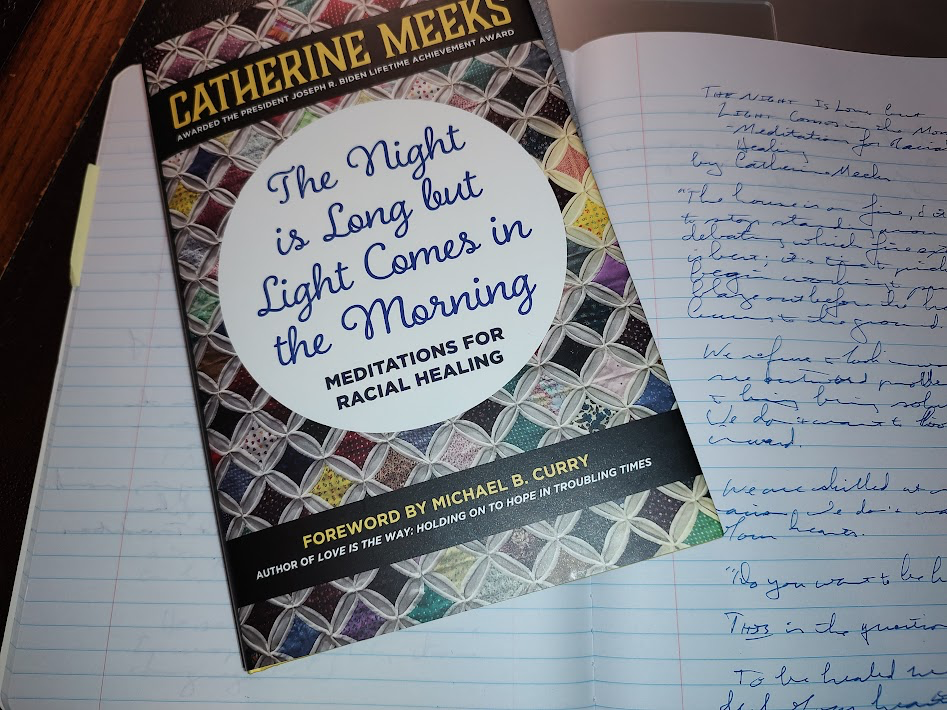 CATHERINE MEEKS
AWARDED THE PRESIDENT JOSEPH R. BIDEN LIFETIME ACHIEVEMENT AWARD
The Night
is Long but
Light Comes in
the Morning
MEDITATIONS FOR
RACIAL HEALING
FOREWORD BY MICHAEL B. CURRY
AUTHOR OF LOVE IS THE WAY: HOLDING ON TO HOPE IN TROUBLING TIMES
THE NIGHT IS LONG but
LIGHT Comes in the Mo
-Meditation for Racia
Healing
by Catherine Meeks
"The house is on fire,
to stop standing
debating which fire
is best; it's time to
begin
Blaze out before the
burns to the ground
We refuse
are outward proble
being
We don't want to
inward.
We are skilled
We don't
Your hearts.
"Do you want to be h
THIS is the question
To be healed